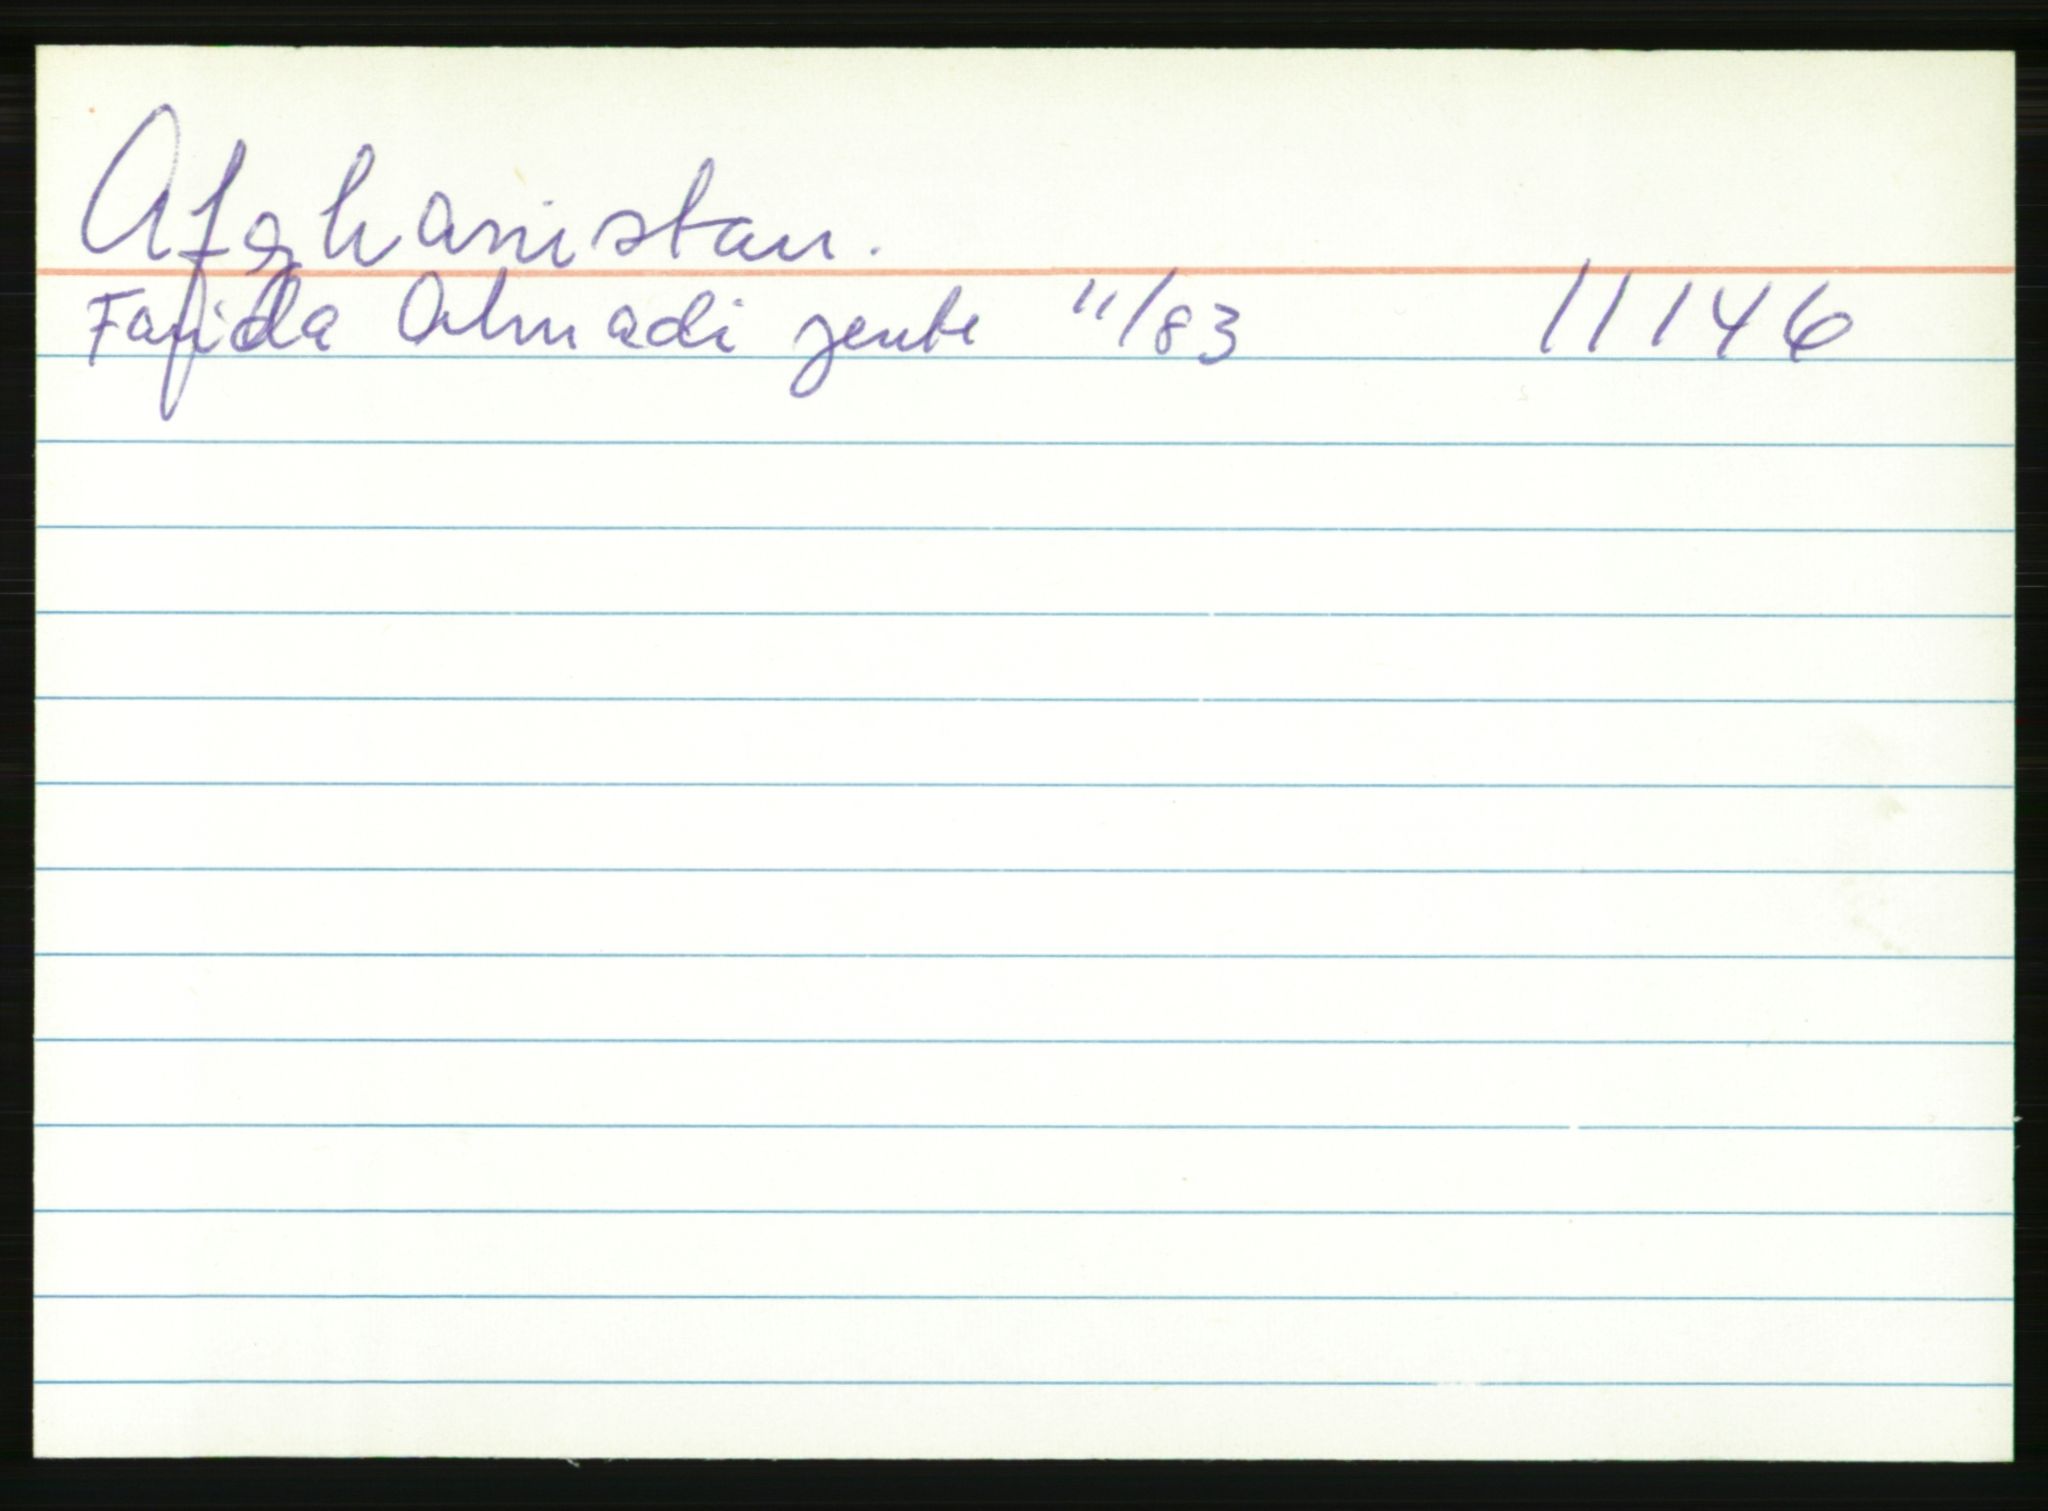 Afghanistan.
Farida Ahmadi jente 11/83 11146